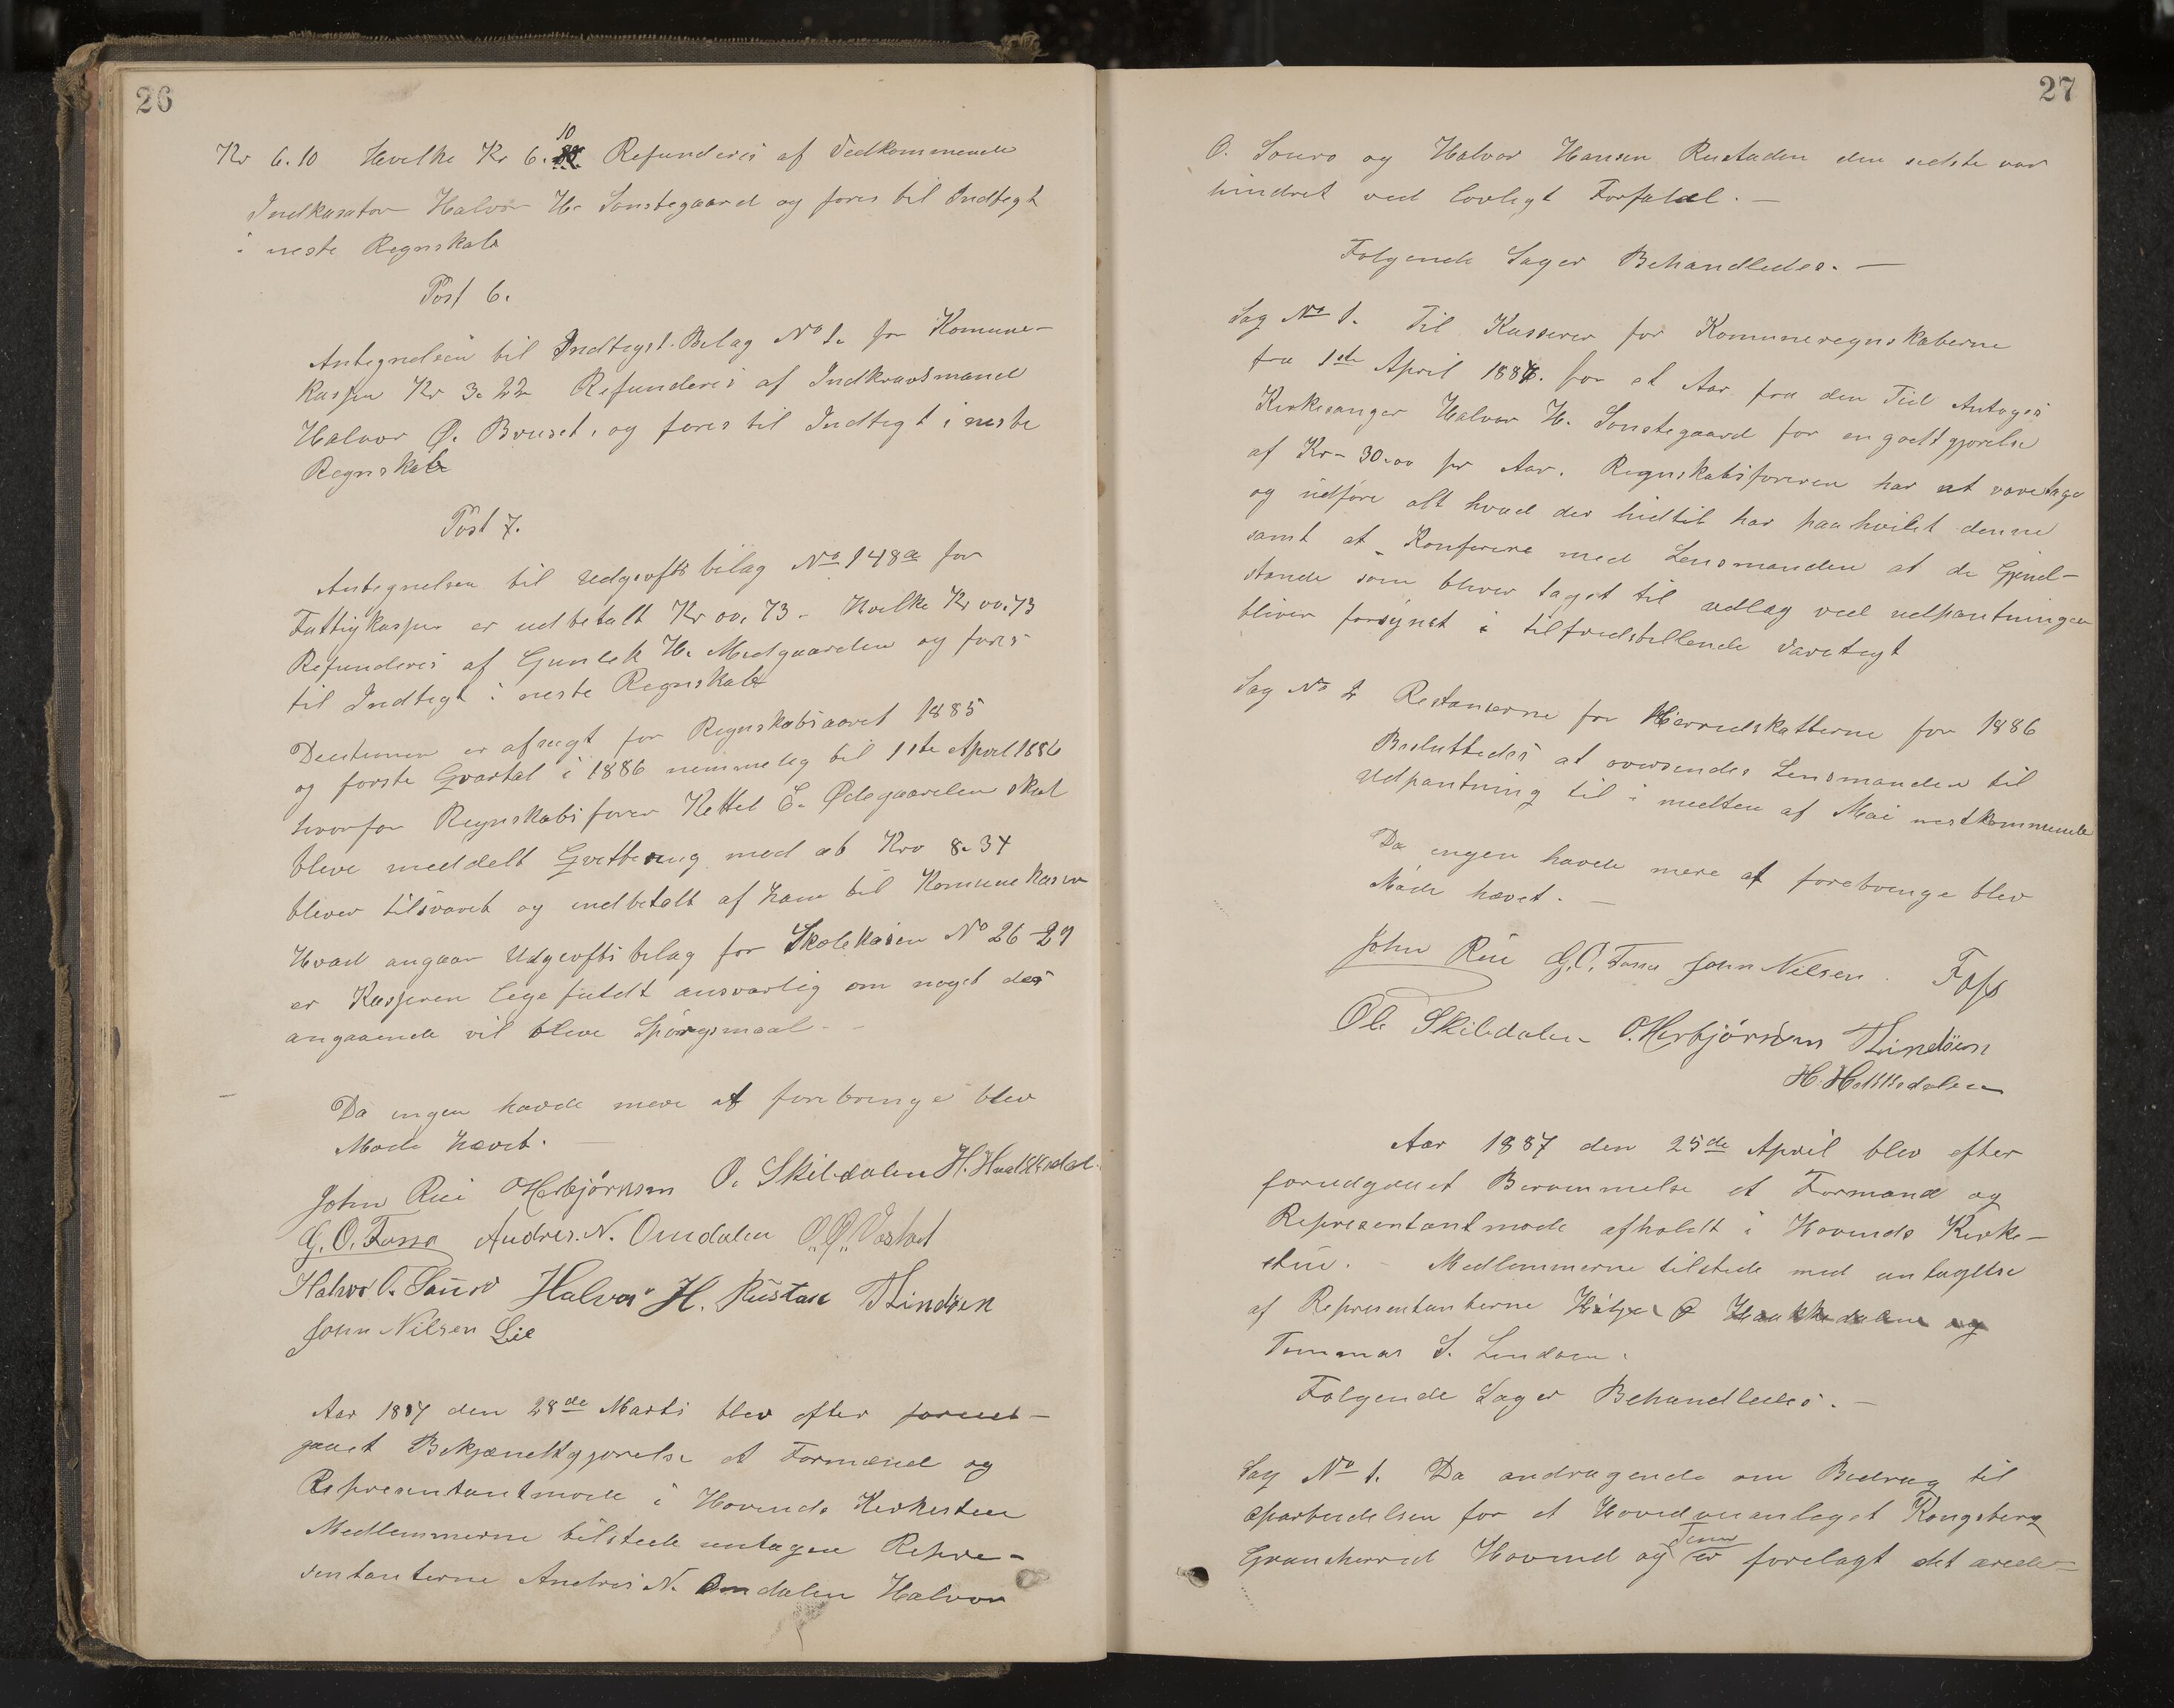 26
Kr 6.10 Hvilke Kr 6.10 Refunderes af Vedkommende
Indkasator Halvor H. Sonstegaard og føres til Indtegt
i neste Regnskab
Post 6.
Antegnelsen til Indtegst. Belag No 1. for Komune-
kassen Kr 3.22 Refunderes af Indkravsmand
Halvor Ø. Bruset, og føres til Indtegt i neste
Regnskab
Post 7.
Antegnelsen til Udgiofts bilag No 148a for
Fattigkassen er udbetalt Kr 00.73 - Hvilke Kr 00.73
Refunderes af Gunlek H. Midgaarden og føres
til Indtegt i neste Regnskab
Decisionen er afsagt for Regnskabsaaret 1885
og forste Qvartal i 1886 nemmelig til 1ste April 1886
hvorfor Regnskabsforer Kettel E. Ødegaarden skal
blive meddelt Qvittering med at Kro 8.34
bliver tilsvaret og indbetalt af ham til Komunekassen
Hvad angaar Udgiofts bilag for Skolekasen No 26-29
er Kasseren lige fuldt ansvarlig om noget des
angaaende vil blive Spørgsmaal -
Da ingen havde mere at forebringe blev
Møde hævet. —
John Rui O Herbjørnsen O. Skildalen H. Haakkedal
G. O. Fosso Andres. N. Omdalen O. Ø. Vaslaet
Halvor O. Sauro Halvor H. Rustan T Lindøen
John Nilsen Lie
Aar 1887 den 28de Marts blev efter forud-
gaaet Bekjændtgjørelse et Formænd og
Representantmøde i Hovinds Kirkestue
Medlemmerne tilstede untagen Repre-
sentanterne Andres N. Omdalen Halvor
27
O. Souro og Halvor Hansen Rustaden den sidste var
hindret ved lovligt Forfald. —
Følgende Sager Behandledes. —
Sag No 1. Til Kasserer for Komuneregnskaberne
fra 1ste April 1887. for et Aar fra den Tid Antoges
Kirkesanger Halvor H. Sonstegaard for en godtgjørelse
af Kr- 30.00 pr Aar. Regnskabsforeren har at varetage
og udføre alt hvad der hidtil har paahvilet denne
samt at Konferere med Lensmanden at de Gjend-
stande som bliver taget til udlæg ved udpantningen
bliver forsynet i tilfredstillende Varetegt
Sag No 2 Restanserne for Herredskatterne for 1886
Besluttedes at oversendes Lensmanden til
Udpantning til i midten af Mai nestkommende
Da ingen havde mere at forebringe blev
Møde hævet. —
John Rui G. O. Fosso John Nilsen. Foss
Ole Skildalen O. Herbjørnsen T Lindøen
H. Hakkedalen
Aar 1887 den 25de April blev efter
forudgaaet Berammelse et Formand og
Representantmøde afholdt i Hovinds Kirke-
stue. - Medlemmerne tilstede med untagelse
af Representanterne Helge O Haakkedalen og
Tommas S. Lindøen.
Følgende Sager Behandledes. —
Sag No 1. Da andragende om Bidrag til
oparbeidelsen for et Hovedveianlæget Kongsberg
Gransherred Hovind og Tinn er forelagt det ærede-